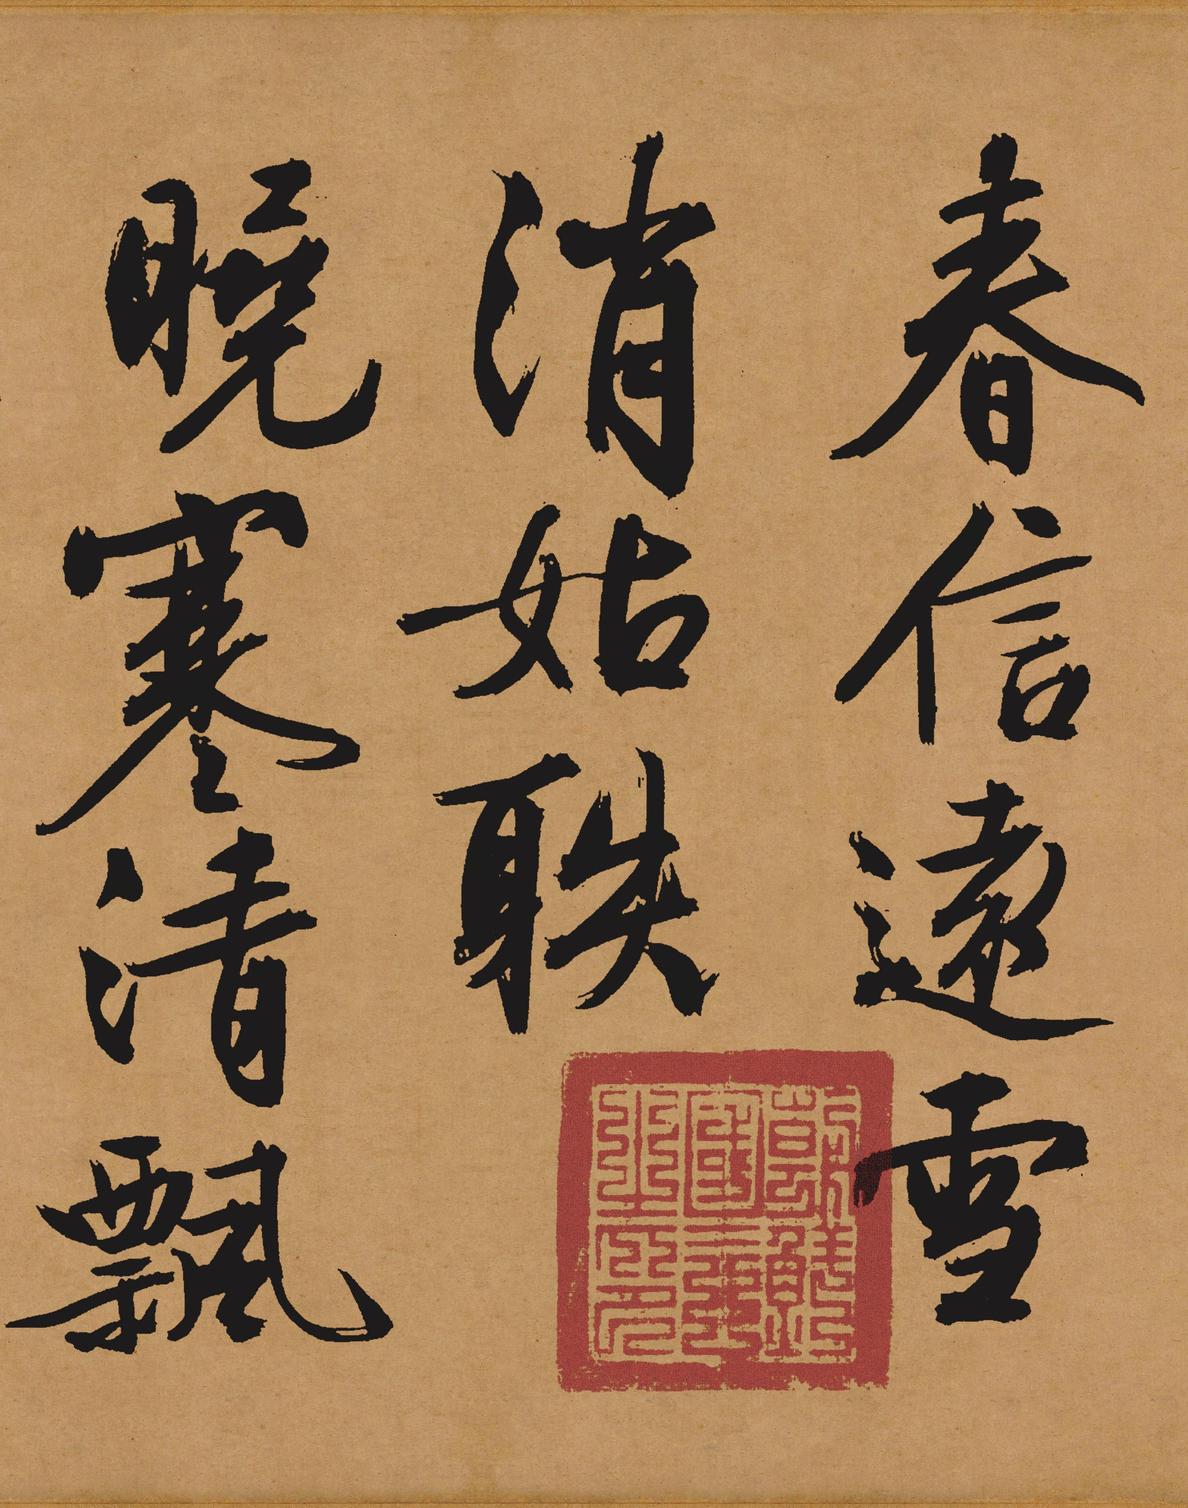 春信遠雪
消姑
曉寒清飄